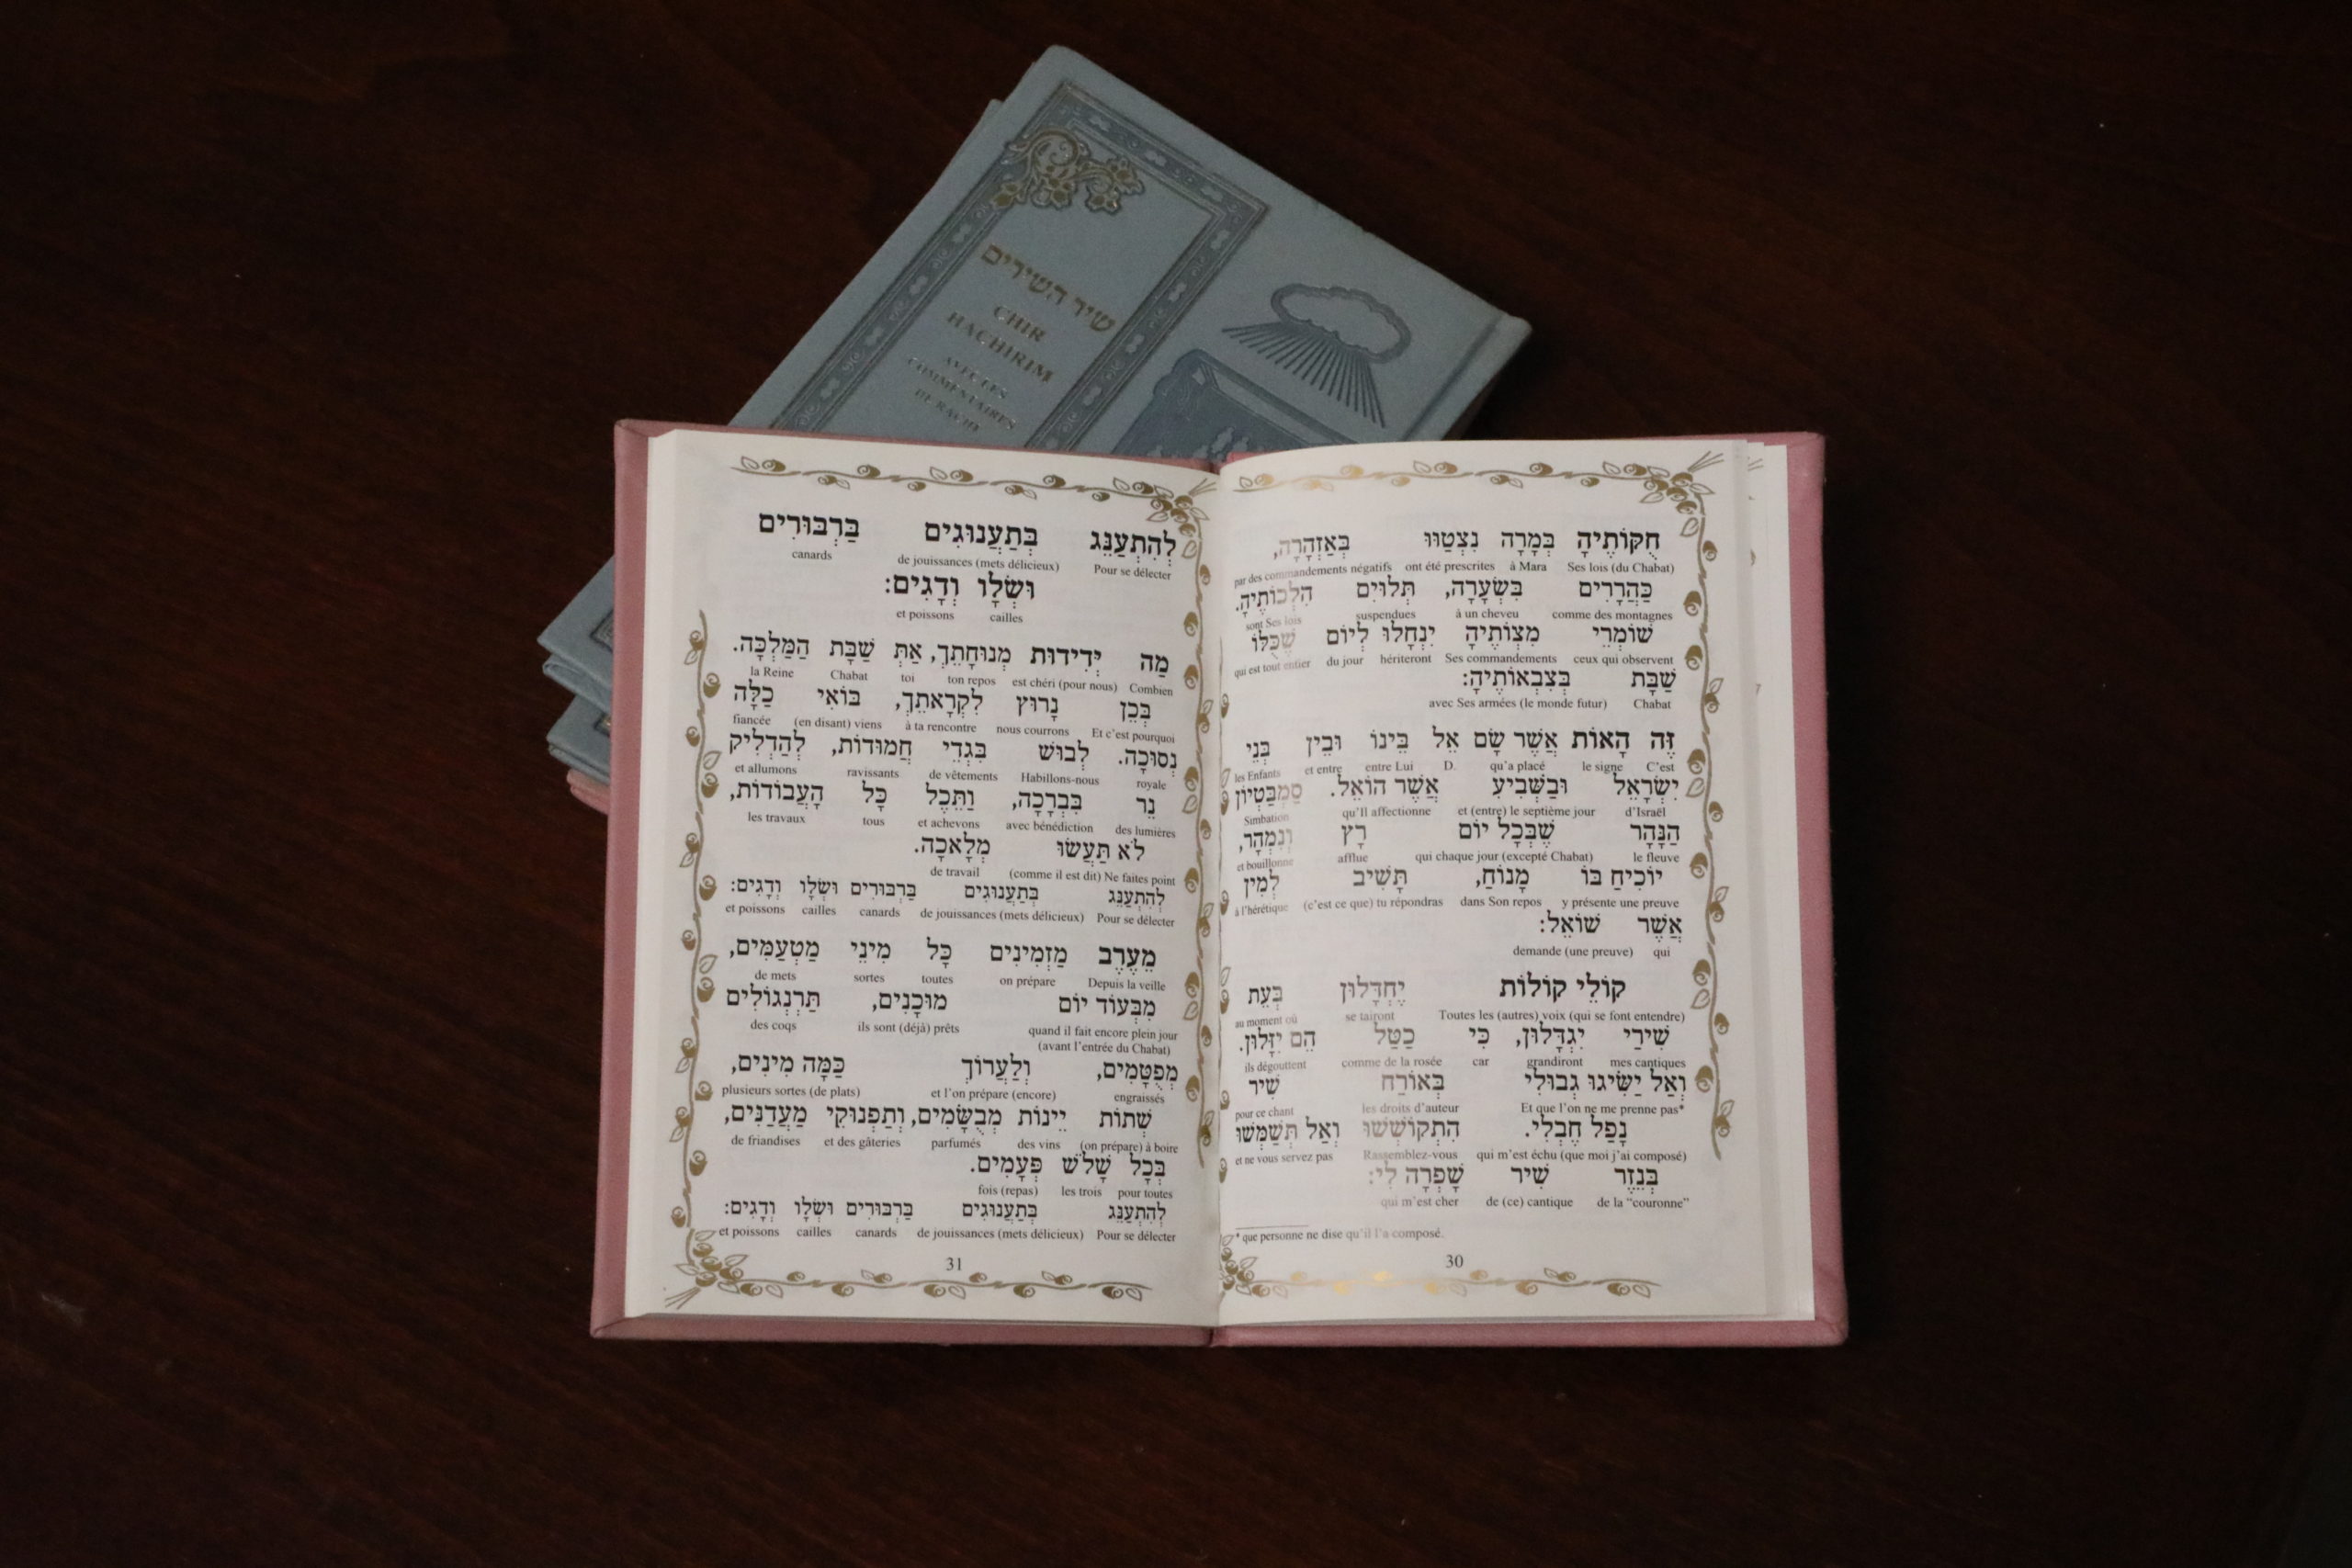 שיר השירים
CHIR
HACHIRIM
AVEC LES
COMMENTAIRES
DE RACHI
חֻקּוֹתֶיהָ בְּמָרָה נִצְטַוּוּ בְּאַזְהָרָה,
Ses lois (du Chabat) à Mara ont été prescrites par des commandements négatifs
כַּהֲרָרִים בִּשְׂעָרָה, תְּלוּיִם הִלְכוֹתֶיהָ.
comme des montagnes à un cheveu suspendues sont Ses lois
שׁוֹמְרֵי מִצְוֹתֶיהָ יִנְחָלוּ לְיוֹם שֶׁכֻּלּוֹ
ceux qui observent Ses commandements hériteront du jour qui est tout entier
שַׁבָּת בְּצִבְאוֹתֶיהָ:
Chabat avec Ses armées (le monde futur)
זֶה הָאוֹת אֲשֶׁר שָׂם אֵל בֵּינוֹ וּבֵין בְּנֵי
C'est le signe qu'a placé D. entre Lui et entre les Enfants
יִשְׂרָאֵל וּבַשְּׁבִיעִי אֲשֶׁר הוֹאֵל. סַמְבַּטְיוֹן
d'Israël et (entre) le septième jour qu'Il affectionne Simbation
הַנָּהָר שֶׁבְּכָל יוֹם רָץ וְנִמְהָר,
le fleuve qui chaque jour (excepté Chabat) afflue et bouillonne
יוֹכִיחַ בּוֹ מָנוֹחַ, תָּשִׁיב לְמִין
y présente une preuve dans Son repos (c'est ce que) tu répondras à l'hérétique
אֲשֶׁר שׁוֹאֵל:
qui demande (une preuve)
קוֹלֵי קוֹלוֹת יֶחְדָּלוּן בְּעֵת
Toutes les (autres) voix (qui se font entendre) se tairont au moment où
שִׁירַי יִגְדָּלוּן, כִּי כַטַּל הֵם יִזָּלוּן.
mes cantiques grandiront car comme de la rosée ils dégouttent
וְאַל יַשִּׂיגוּ גְבוּלִי בְּאוֹרַח שִׁיר
Et que l'on ne me prenne pas* les droits d'auteur pour ce chant
נָפַל חֶבְלִי. הִתְקוֹשְׁשׁוּ וְאַל תְּשַׁמְּשׁוּ
qui m'est échu (que moi j'ai composé) Rassemblez-vous et ne vous servez pas
בְּנֵזֶר שִׁיר שָׁפְרָה לִי:
de la "couronne" de (ce) cantique qui m'est cher
* que personne ne dise qu'il l'a composé.
30
לְהִתְעַנֵּג בְּתַעֲנוּגִים בַּרְבּוּרִים
Pour se délecter de jouissances (mets délicieux) canards
וּשְׂלָו וְדָגִים:
cailles et poissons
מַה יְּדִידוּת מְנוּחָתֵךְ, אַתְּ שַׁבָּת הַמַּלְכָּה.
Combien est chéri (pour nous) ton repos toi Chabat la Reine
בְּכֵן נָרוּץ לִקְרָאתֵךְ, בּוֹאִי כַלָּה
Et c'est pourquoi nous courrons à ta rencontre (en disant) viens fiancée
נְסוּכָה. לְבוּשׁ בִּגְדֵי חֲמוּדוֹת, לְהַדְלִיק
royale Habillons-nous de vêtements ravissants et allumons
נֵר בִּבְרָכָה, וַתֵּכֶל כָּל הָעֲבוֹדוֹת,
des lumières avec bénédiction et achevons tous les travaux
לֹא תַעֲשׂוּ מְלָאכָה.
(comme il est dit) Ne faites point de travail
לְהִתְעַנֵּג בְּתַעֲנוּגִים בַּרְבּוּרִים וּשְׂלָו וְדָגִים:
Pour se délecter de jouissances (mets délicieux) canards cailles et poissons
מֵעֶרֶב מַזְמִינִים כָּל מִינֵי מַטְעַמִּים,
Depuis la veille on prépare toutes sortes de mets
מִבְּעוֹד יוֹם מוּכָנִים, תַּרְנְגוֹלִים
quand il fait encore plein jour ils sont (déjà) prêts des coqs
(avant l'entrée du Chabat)
מְפֻטָּמִים, וְלַעֲרוֹךְ כַּמָּה מִינִים,
engraissés et l'on prépare (encore) plusieurs sortes (de plats)
שְׁתוֹת יֵינוֹת מְבֻשָּׂמִים, וְתַפְנוּקֵי מַעֲדַנִּים,
(on prépare) à boire des vins parfumés et des gâteries de friandises
בְּכָל שָׁלֹשׁ פְּעָמִים.
pour toutes les trois fois (repas)
לְהִתְעַנֵּג בְּתַעֲנוּגִים בַּרְבּוּרִים וּשְׂלָו וְדָגִים:
Pour se délecter de jouissances (mets délicieux) canards cailles et poissons
31